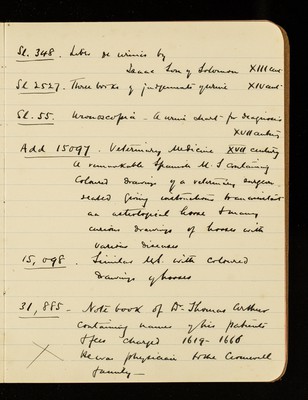 Sl. 348. Liber de urinis by
Isaac Son of Solomon XIII cent
Sl 2527. Three books of judgements of urine XIV cent
Sl. 55. Uroscopia - A urine chart for diagnosis
XVII century
Add 15097. Veterinary Medicine XVII century
A remarkable Spanish M.S containing
Coloured drawings of a veterinary surgeon
seated giving instructions to an assistant
an astrological horse & many
curious drawings of horses with
various diseases
15,098. Similar MS. with coloured
drawings of horses
31,885. Note book of Dr. Thomas Arthur
Containing names of his patients
& fees charged 1619-1666
He was physician to the Cromwell
family —